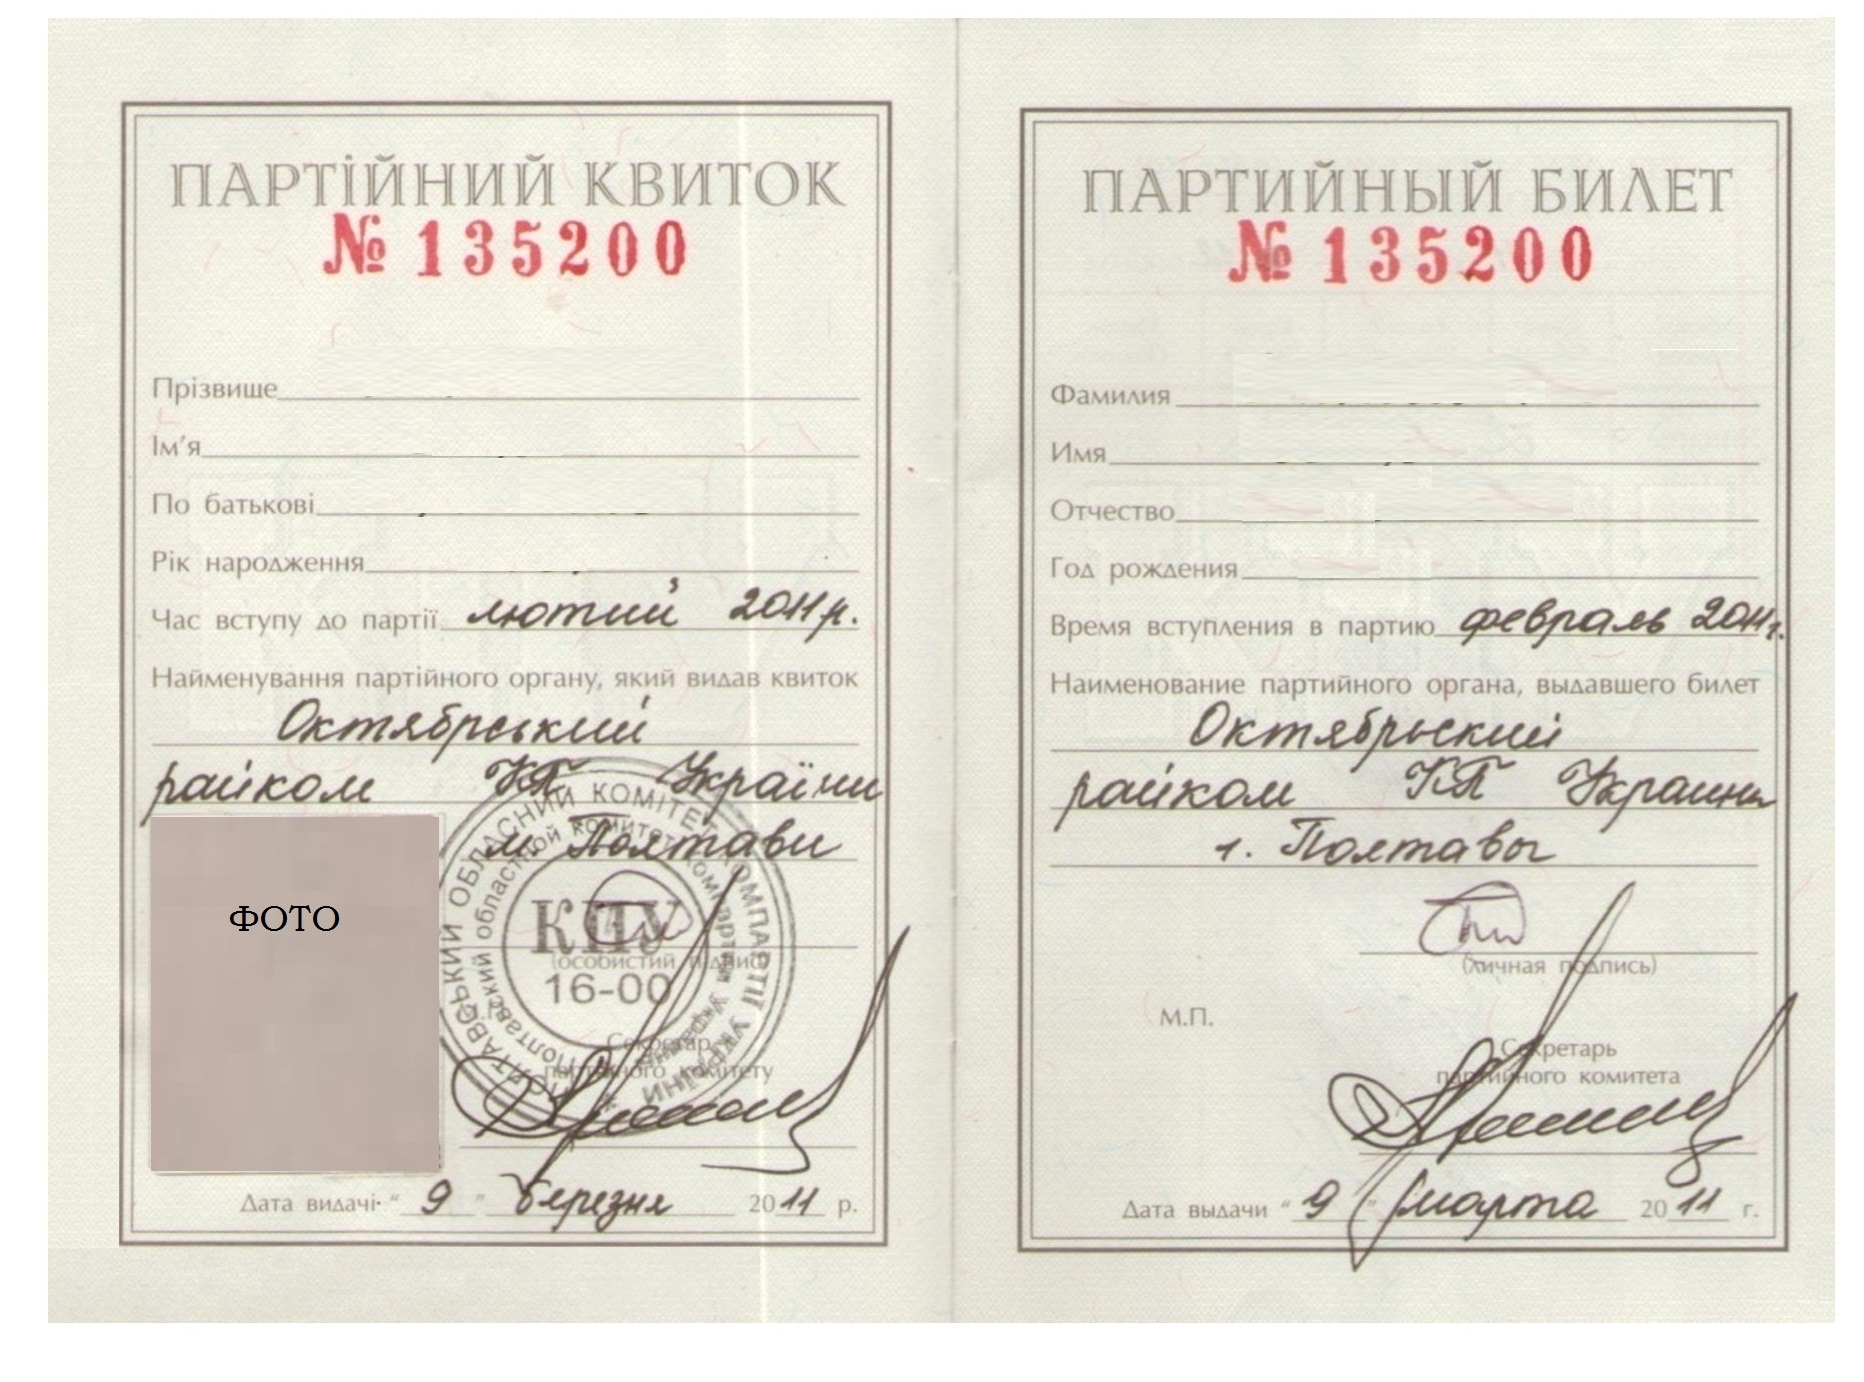 ПАРТІЙНИЙ КВИТОК
№ 135200
Прізвище
Ім’я
По батькові
Рік народження
Час вступу до партії лютий 2011 р.
Найменування партійного органу, який видав квиток
Октябрський
райком КП України
м. Полтави
ФОТО
ПОЛТАВСЬКИЙ ОБЛАСНИЙ КОМІТЕТ КОМПАРТІЇ УКРАЇНИ
Полтавский областной комитет Компартии Украины
КПУ
16-00
(особистий підпис)
Секретар
партійного комітету
Дата видачі “ 9 ” березня 2011 р.
ПАРТИЙНЫЙ БИЛЕТ
№ 135200
Фамилия
Имя
Отчество
Год рождения
Время вступления в партию февраль 2011 г.
Наименование партийного органа, выдавшего билет
Октябрьский
райком КП Украины
г. Полтавы
(личная подпись)
М.П.
Секретарь
партийного комитета
Дата выдачи “ 9 ” марта 2011 г.